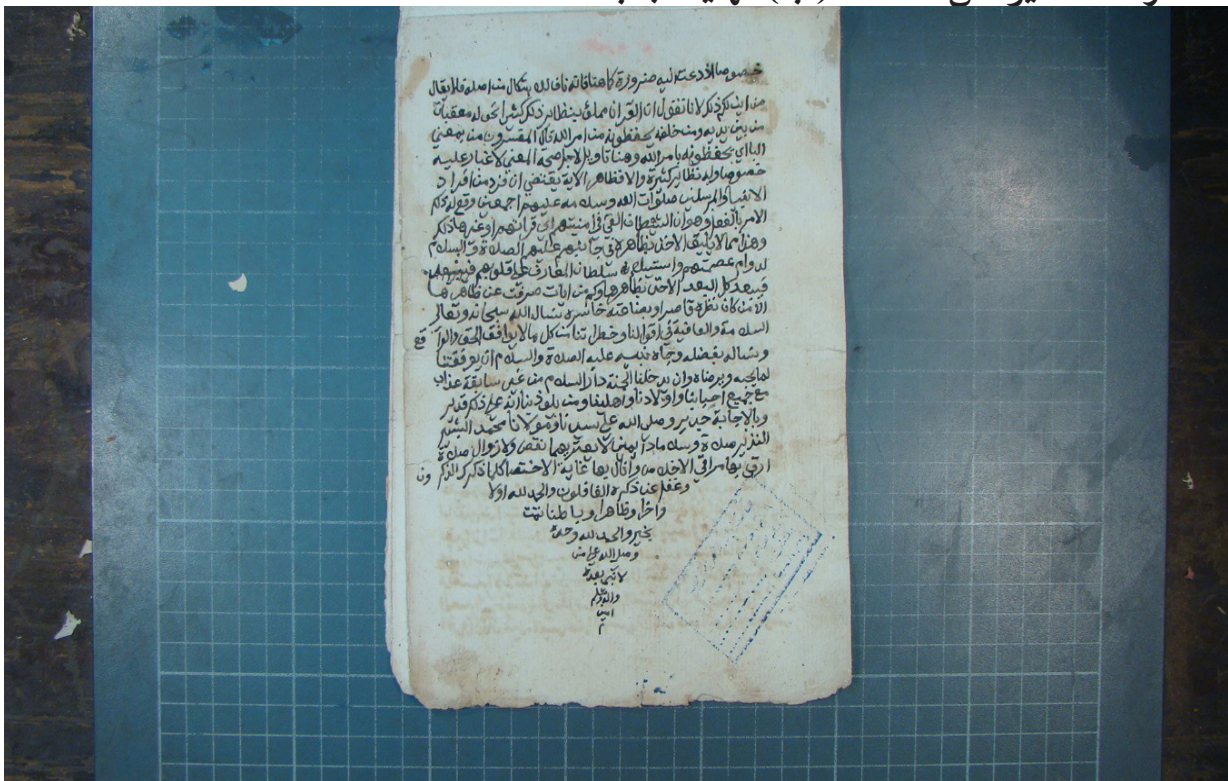 خصوصا اذا دعت اليه ضرورة كما هنا فانه نافالذ يشكال من اصله فلا يقال
من اين لكم ذلك لانا نقول ان القرآن مملؤ بنظائر ذلك كثيرا نحو له معقبات
من بين يديه ومن خلفه يحفظونه من امر الله قال المفسرون من بمعنى
الباء اي يحفظونه بامر الله وهنا تاويل لاجل صحة المعنى لا غبار عليه
خصوصا وله نظائر كثيرة والا فظاهر الاية يقتضي ان فرد من افراد
الانبيا والمرسلين صلوات الله وسلامه عليهم اجمعين وقع له ذلك
الامر بالفعل وهو ان الشيطان القى في امنيتهم اي قرائتهم او غيرها ذلك
وهذا مما لا يليق الاخذ بظاهره في جانبهم عليهم الصلاة والسلام
لدوام عصمتهم واستيلاء سلطان المعارف على قلوبهم
فيبعد كل البعد الاخذ بظاهرها وكم من ايات صرفت عن ظاهرها
الا من كان نظره قاصرا وبضاعته خاسرة نسال الله سبحانه وتعالى
السلامة والعافية في اقوالنا وخطراتنا من كل ما لا يوافق الحق والواقع
ونساله بفضله وجاه نبيه عليه الصلاة والسلام ان يوفقنا
لما يحبه ويرضاه وان يدخلنا الجنة دار السلام من غير سابقة عذاب
مع جميع احبابنا واولادنا واهلينا ومن يلوذ بنا انه على ذلك قدير
وبالاجابة جدير وصلى الله على سيدنا ومولانا محمد البشير
النذير صلاة وسلاما دائمين لا يعتريهما نقص ولا زوال صلاة
ارقى بها مراقي الاخلاص وانال بها غاية الاختصا كلما ذكرك الذاكرون
وغفل عن ذكره الغافلون والحمد لله اولا
واخرا وظاهرا وباطنا تمت
بخير والحمد لله وحده
وصلى الله على من
لا نبي بعده
واله وسلم
امين
م